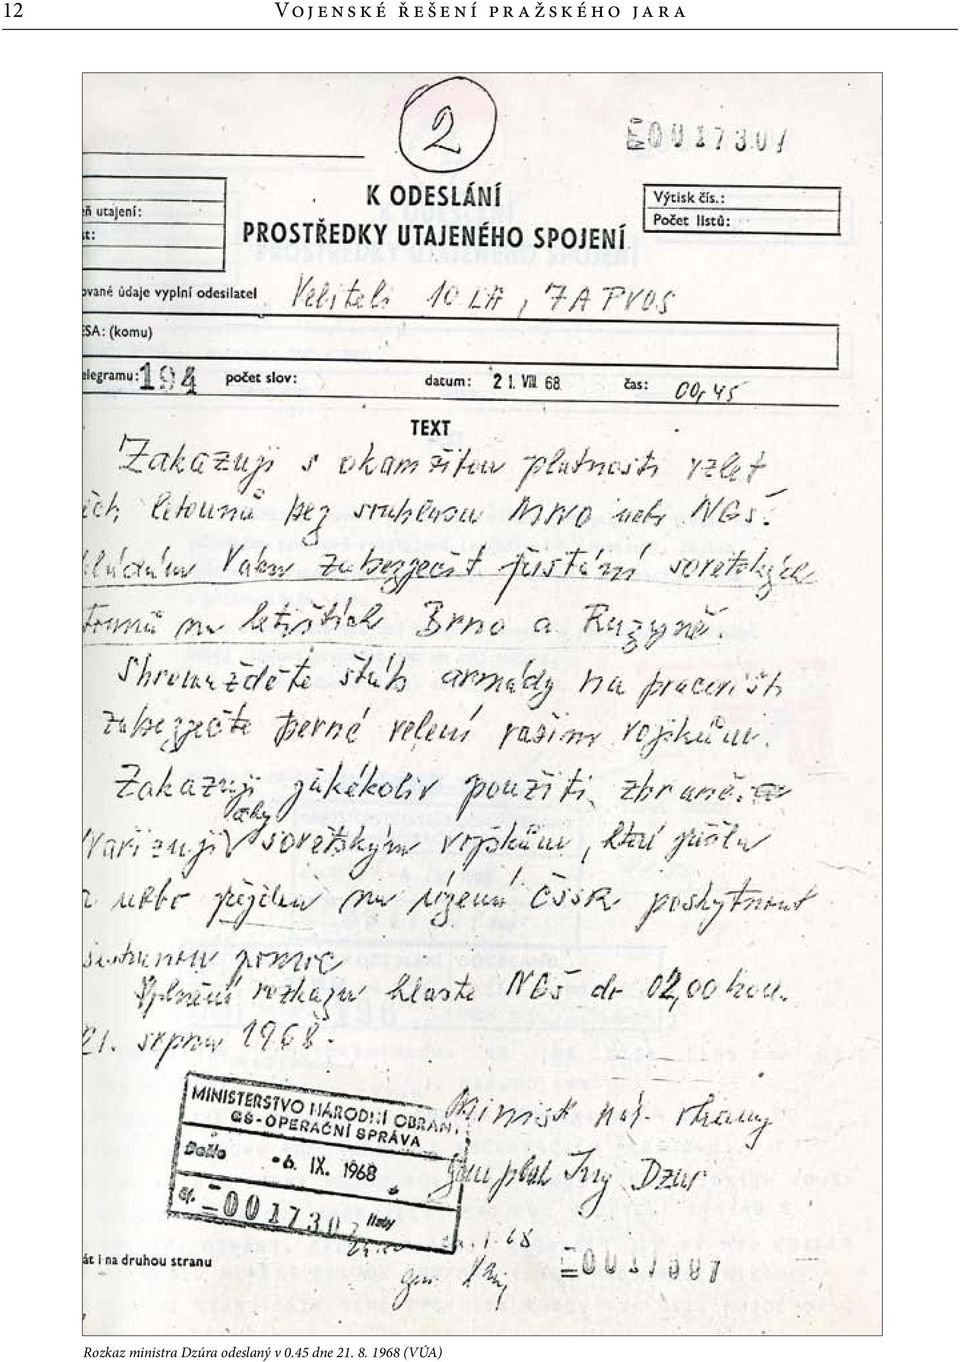 12 Vojenské řešení pražského jara
2
E0017307
K ODESLÁNÍ
PROSTŘEDKY UTAJENÉHO SPOJENÍ
ň utajení:
t:
Výtisk čís.:
Počet listů:
ované údaje vyplní odesílatel Veliteli 10 LA, 7A PVOS
SA: (komu)
elegramu: 194 počet slov: datum: 21. VIII. 68 čas: 00,45
TEXT
Zakazuji s okamžitou platností vzlet
ích letounů bez souhlasu MNO nebo NGŠ.
kládám Vám zabezpečit přistání sovětských
na letištích Brno a Ruzyně.
Shromážděte štáb armády na pracovišti
zabezpečte pevné velení vašim vojskům.
Zakazuji jakékoliv použití zbraně.
aby
sovětským vojskům, která přišla
nebo přijdou na území ČSSR poskytnout
pomoc
Splnění rozkazu hlaste NGŠ do 02,00 hod.
21. srpna 1968.
Ministr nár. obrany
gen pluk Ing Dzúr
MINISTERSTVO NÁRODNÍ OBRANY
GŠ-OPERAČNÍ SPRÁVA
Došlo -6. IX. 1968
čj. E0017307 listy
68
át i na druhou stranu
E0017307
Rozkaz ministra Dzúra odeslaný v 0.45 dne 21. 8. 1968 (VÚA)